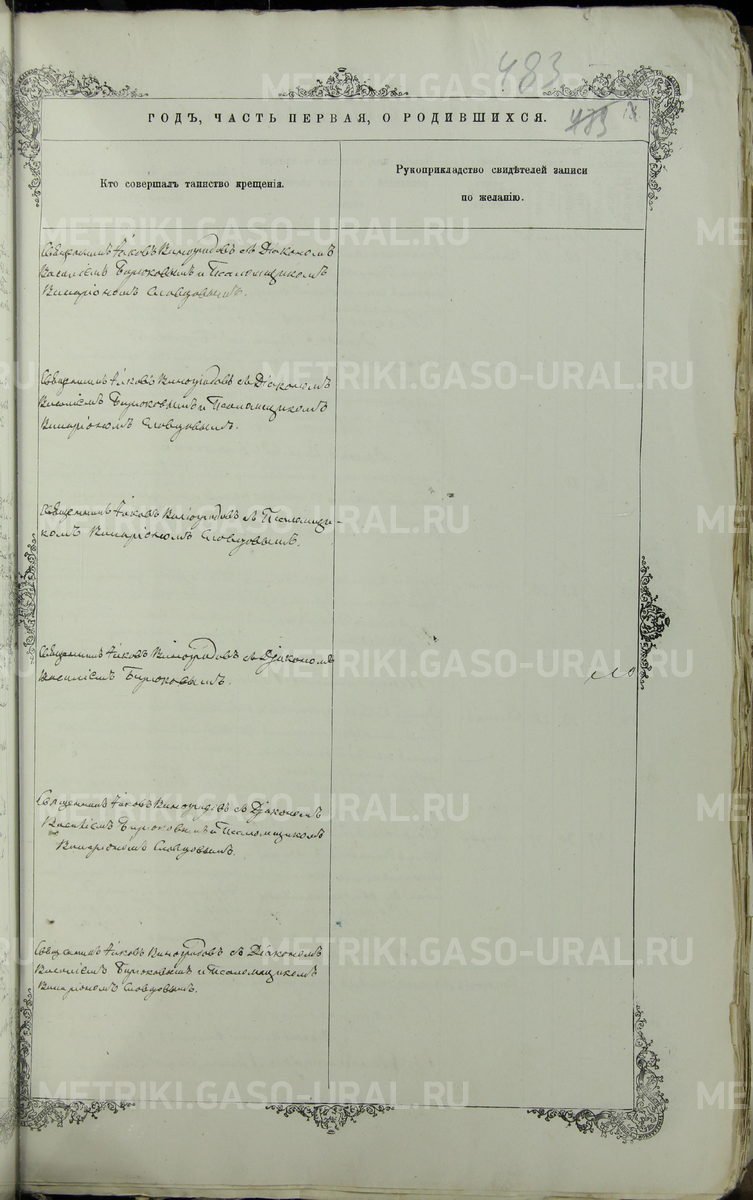 483
METRIKI.GASO-URAL.RU
ГОДЪ, ЧАСТЬ ПЕРВАЯ, О РОДИВШИХСЯ.
483
Кто совершалъ таинство крещенія.
Рукоприкладство свидѣтелей записи
по желанію.
METRIKI.GASO-URAL.RU
Священникъ Іаковъ Виноградовъ съ Діакономъ
Василіемъ Бирюковымъ и Псаломщикомъ
Иларіономъ Словцовымъ.
METRIKI.GASO-URAL.RU
Священникъ Іаковъ Виноградовъ съ Діакономъ
Василіемъ Бирюковымъ и Псаломщикомъ
Иларіономъ Словцовымъ.
METRIKI.GASO-URAL.RU
Священникъ Іаковъ Виноградовъ съ Псаломщи-
комъ Иларіономъ Словцовымъ.
METRIKI.GASO-URAL.RU
Священникъ Іаковъ Виноградовъ съ Діакономъ
Василіемъ Бирюковымъ.
METRIKI.GASO-URAL.RU
Священникъ Іаковъ Виноградовъ съ Діакономъ
Василіемъ Бирюковымъ и Псаломщикомъ
Иларіономъ Словцовымъ.
METRIKI.GASO-URAL.RU
Священникъ Іаковъ Виноградовъ съ Діакономъ
Василіемъ Бирюковымъ и Псаломщикомъ
Иларіономъ Словцовымъ.
METRIKI.GASO-URAL.RU